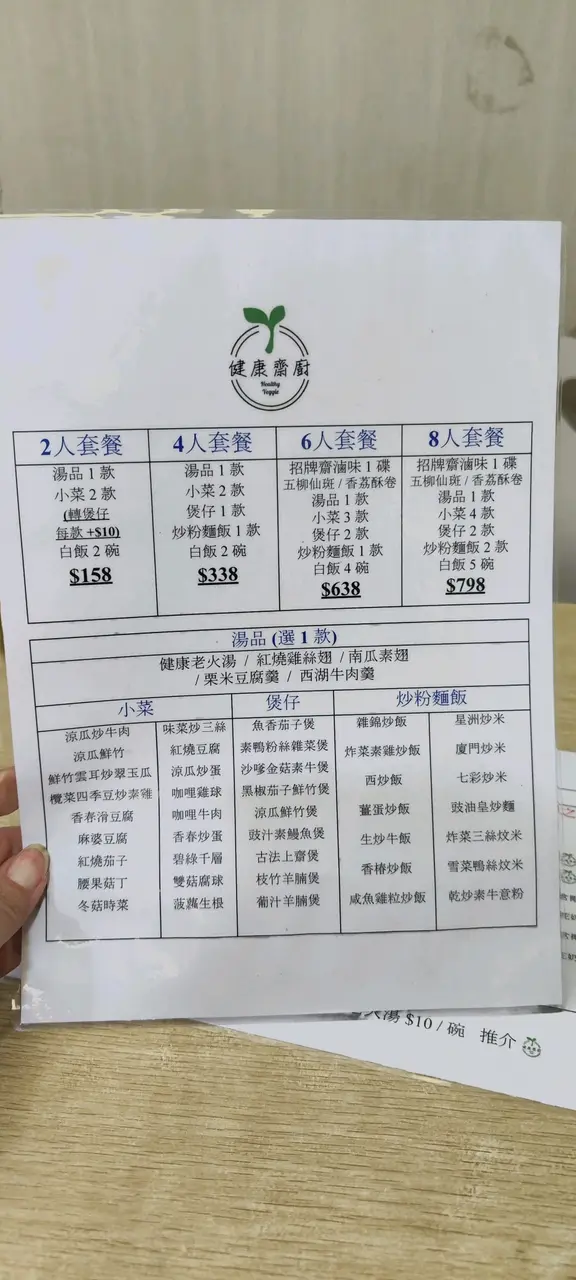 健康齋廚
Healthy
Veggie
2人套餐
湯品 1 款
小菜 2 款
(轉煲仔
每款 +$10)
白飯 2 碗
$158
4人套餐
湯品 1 款
小菜 2 款
煲仔 1 款
炒粉麵飯 1 款
白飯 2 碗
$338
6人套餐
招牌齋滷味 1 碟
五柳仙斑 / 香荔酥卷
湯品 1 款
小菜 3 款
煲仔 2 款
炒粉麵飯 1 款
白飯 4 碗
$638
8人套餐
招牌齋滷味 1 碟
五柳仙斑 / 香荔酥卷
湯品 1 款
小菜 4 款
煲仔 2 款
炒粉麵飯 2 款
白飯 5 碗
$798
湯品 (選 1 款)
健康老火湯 / 紅燒雞絲翅 / 南瓜素翅
/ 栗米豆腐羹 / 西湖牛肉羹
小菜
涼瓜炒牛肉
涼瓜鮮竹
鮮竹雲耳炒翠玉瓜
欖菜四季豆炒素雞
香春滑豆腐
麻婆豆腐
紅燒茄子
腰果菇丁
冬菇時菜
味菜炒三絲
紅燒豆腐
涼瓜炒蛋
咖哩雞球
咖哩牛肉
香春炒蛋
碧綠千層
雙菇腐球
菠蘿生根
煲仔
魚香茄子煲
素鴨粉絲雜菜煲
沙嗲金菇素牛煲
黑椒茄子鮮竹煲
涼瓜鮮竹煲
豉汁素鰻魚煲
古法上齋煲
枝竹羊腩煲
葡汁羊腩煲
炒粉麵飯
雜錦炒飯
炸菜素雞炒飯
西炒飯
薑蛋炒飯
生炒牛飯
香椿炒飯
咸魚雞粒炒飯
星洲炒米
廈門炒米
七彩炒米
豉油皇炒麵
炸菜三絲炆米
雪菜鴨絲炆米
乾炒素牛意粉
火湯 $10 / 碗 推介